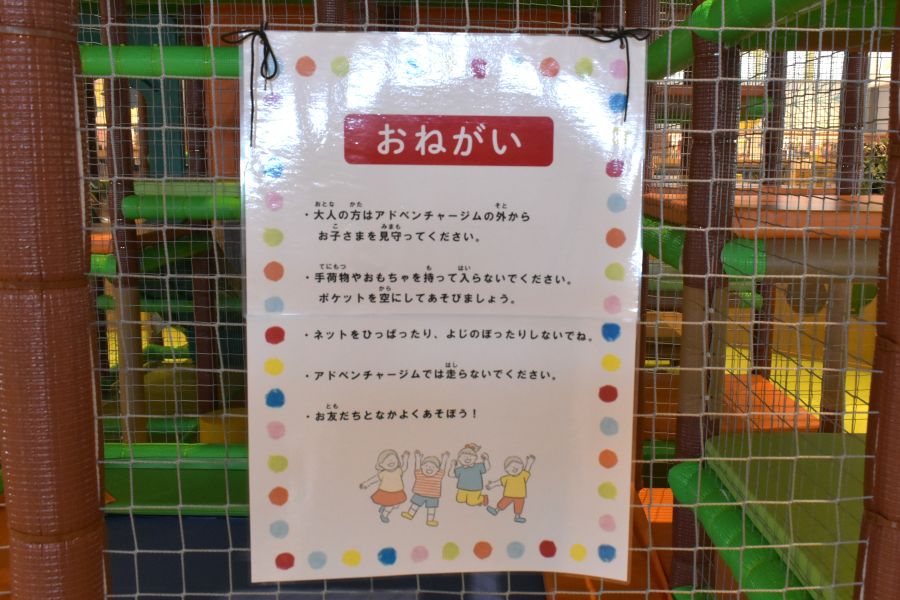 おねがい
・大人の方はアドベンチャージムの外から
お子さまを見守ってください。
・手荷物やおもちゃを持って入らないでください。
ポケットを空にしてあそびましょう。
・ネットをひっぱったり、よじのぼったりしないでね。
・アドベンチャージムでは走らないでください。
・お友だちとなかよくあそぼう！